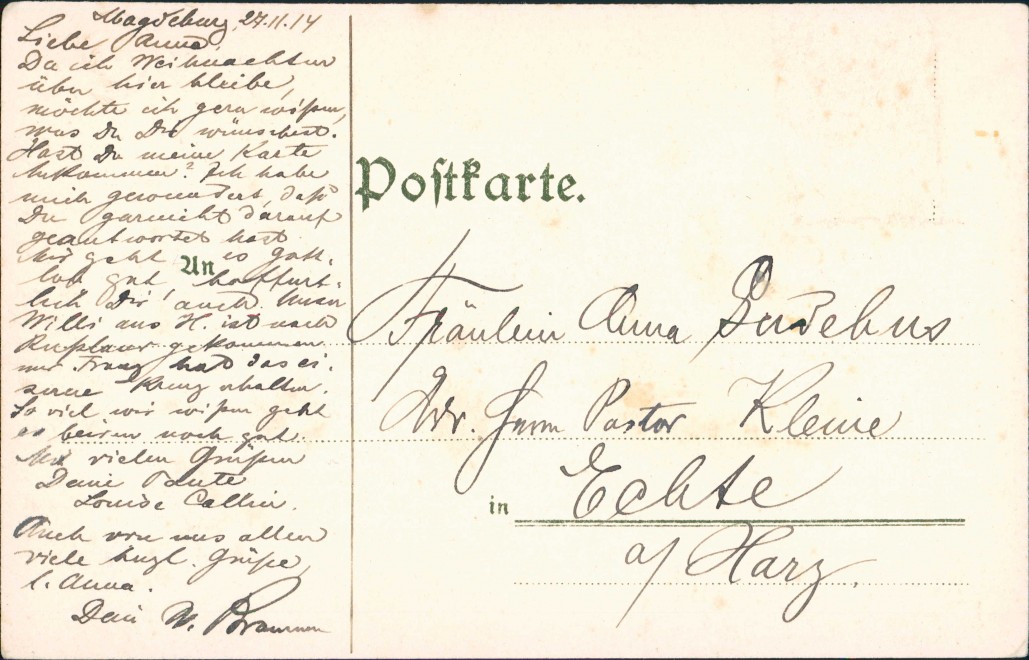 Magdeburg, 27.11.14
Liebe Anna,
Da ich Weihnachten
über hier bleibe,
möchte ich gern wißen,
was Du Dir wünschest.
Hast Du meine Karte
bekommen? Ich habe
mich gewundert, daß
Du garnicht darauf
geantwortet hast.
Mir geht es Gott-
lob gut, hoffent-
lich Dir auch. Unser
Willi aus H. ist nach
Rußland gekommen
und Franz hat das ei-
serne Kreuz erhalten.
So viel wir wißen geht
es beiden noch gut.
Mit vielen Grüßen
Deine Tante
Louise
Auch von uns allen
viele herzl. Grüße,
l. Anna.
Dein W.
Postkarte.
An
Fräulein Anna Sudehus
Adr. Herrn Pastor Kleine
in Echte
a/ Harz.